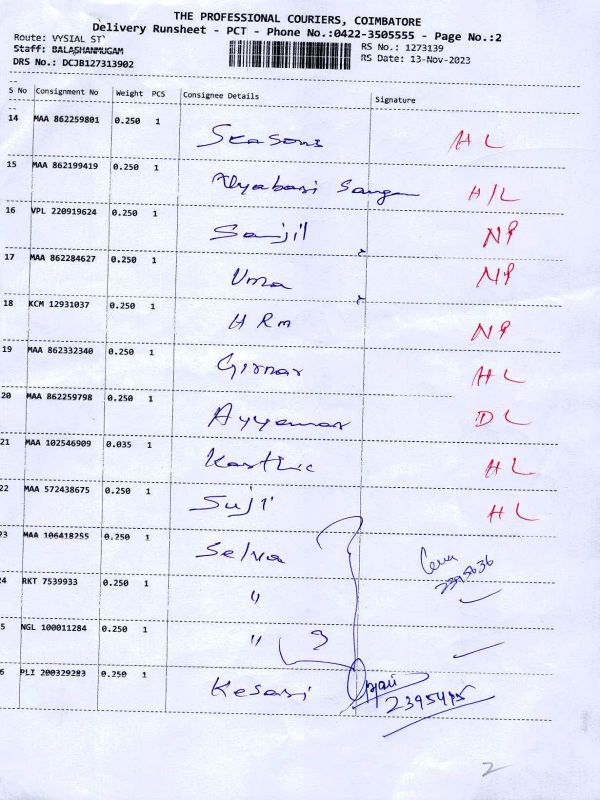 THE PROFESSIONAL COURIERS, COIMBATORE
Delivery Runsheet - PCT - Phone No.:0422-3505555 - Page No.:2
Route: VYSIAL ST
RS No.: 1273139
Staff: BALASHANMUGAM
RS Date: 13-Nov-2023
DRS No.: DCJB127313902
S No Consignment No Weight PCS Consignee Details Signature
14 MAA 862259801 0.250 1 Seasons H L
15 MAA 862199419 0.250 1 H/L
16 VPL 220919624 0.250 1 Sanjil NP
17 MAA 862284627 0.250 1 Uma NP
18 KCM 12931037 0.250 1 H Rm NP
19 MAA 862332340 0.250 1 Girnar H L
20 MAA 862259798 0.250 1 Ayyanar D L
21 MAA 102546909 0.035 1 Karthic H L
22 MAA 572438675 0.250 1 Suji H L
23 MAA 106418255 0.250 1 Selva
24 RKT 7539933 0.250 1 "
5 NGL 100011284 0.250 1 " 3
6 PLI 200329283 0.250 1 Kesari
2395475
2